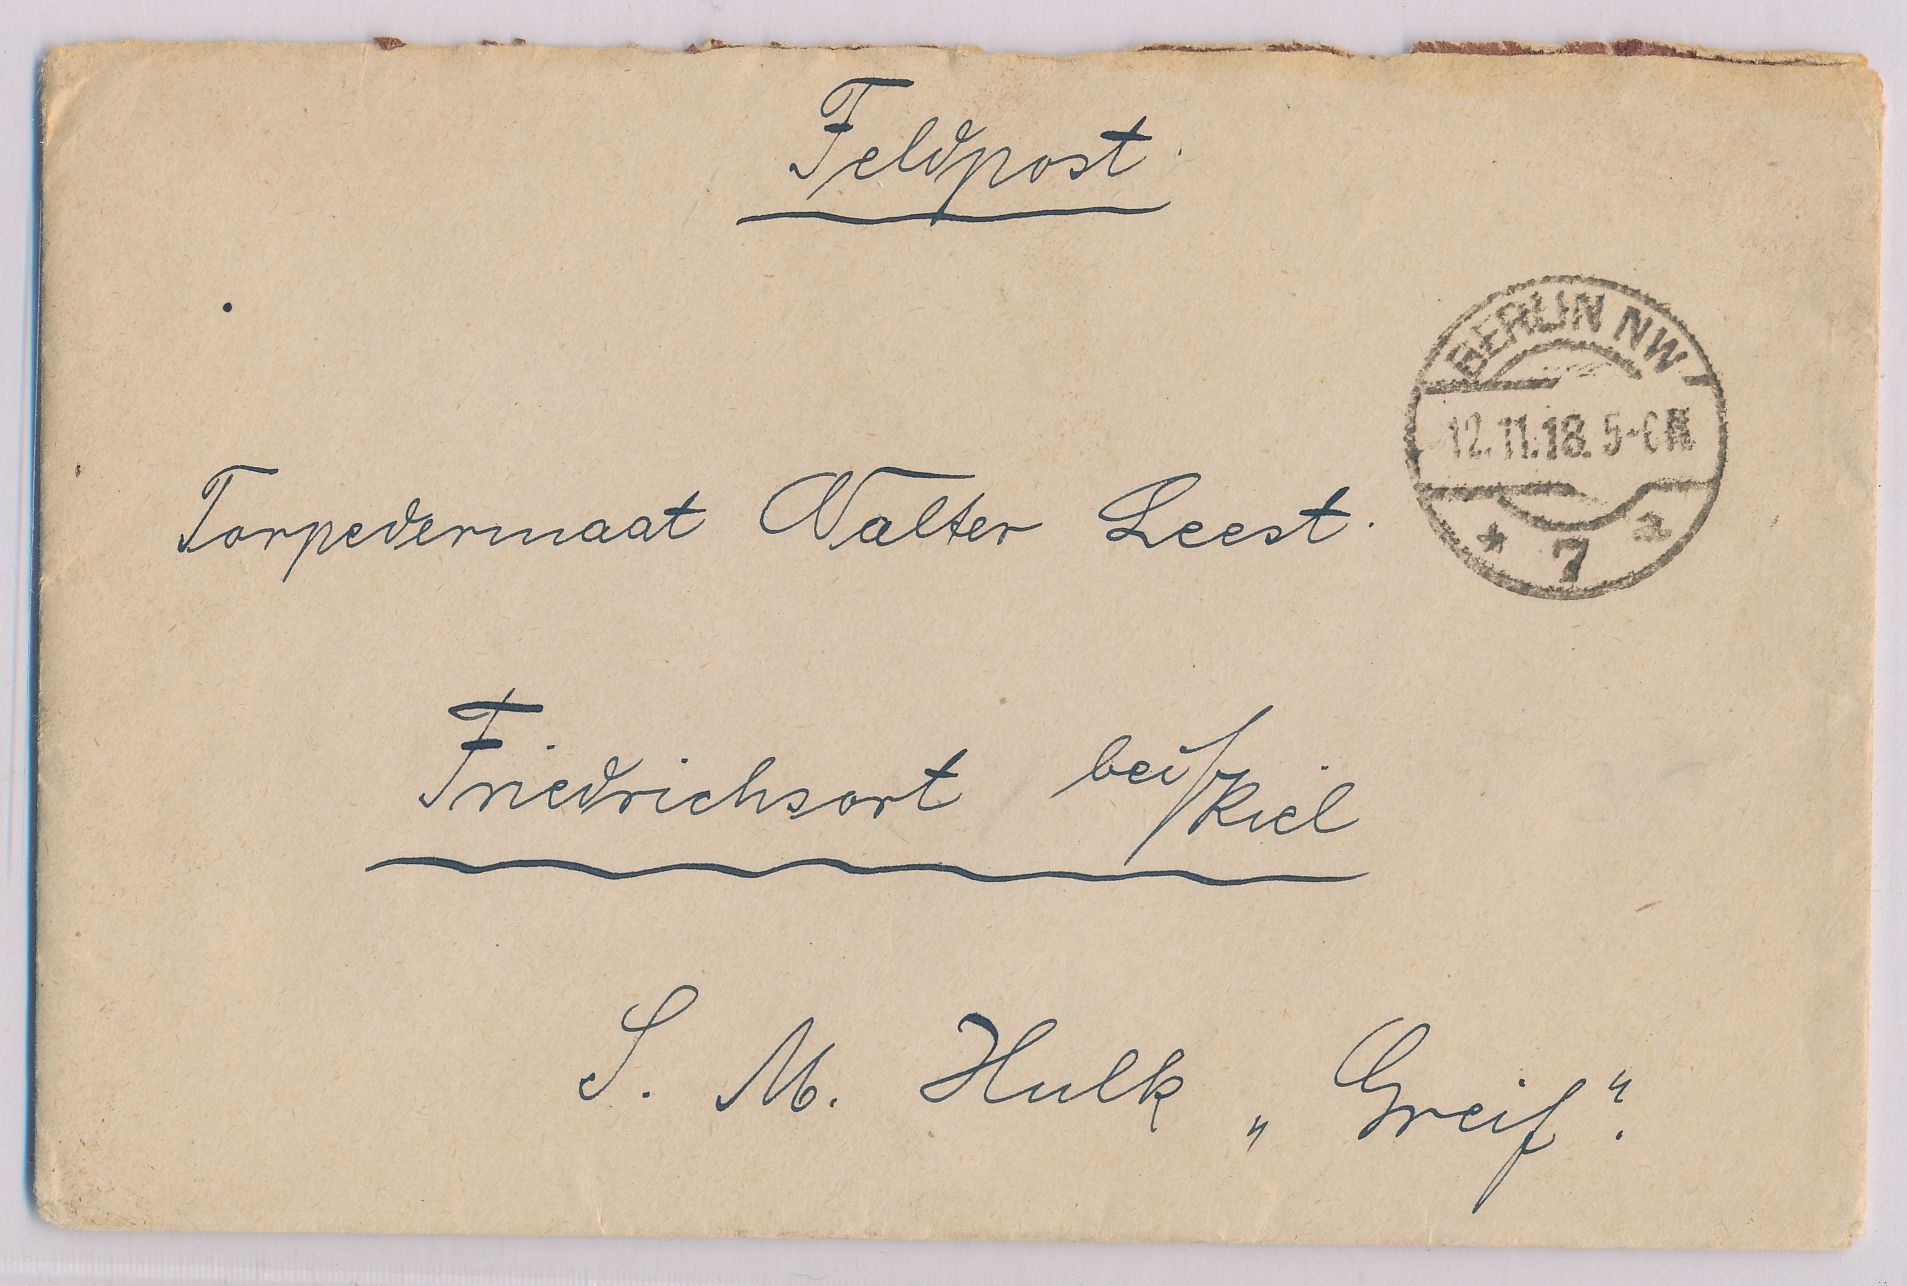 Feldpost.
BERLIN NW
12.11.18. 5-6 N
* 7 a
Torpedermaat Walter Leest.
Friedrichsort bei/Kiel
S. M. Hulk „Greif".